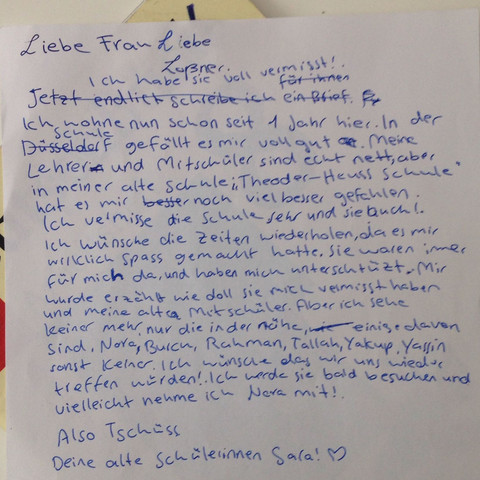 Liebe Frau Liebe
Laßner.
Ich habe sie voll vermisst!.
für ihnen
Jetzt endlich schreibe ich ein Brief.
Ich wohne nun schon seit 1 Jahr hier. In der
Schule
Düsseldorf gefällt es mir voll gut. Meine
Lehrer und Mitschüler sind echt nett, aber
in meiner alte Schule „Theodor-Heuss Schule"
hat es mir besser noch viel besser gefahlen.
Ich vermisse die Schule sehr und sie buch!.
Ich wünsche die Zeiten wiederholen, da es mir
wirklich spass gemacht hatte. Sie waren imer
für mich da, und haben mich unterschtüzt. Mir
wurde erzählt wie doll sie mich vermisst haben
und meine alte Mitschüler. Aber ich sehe
keiner mehr, nur die in der nähe, einige davon
sind, Nora, Burcu, Rahman, Tallah, Yakup, Yassin
sonst Keiner. Ich wünsche das wir uns wieder
treffen würden!. Ich werde sie bald besuchen und
vielleicht nehme ich Nora mit!.
Also Tschüss
Deine alte Schülerinnen Sara! ♡